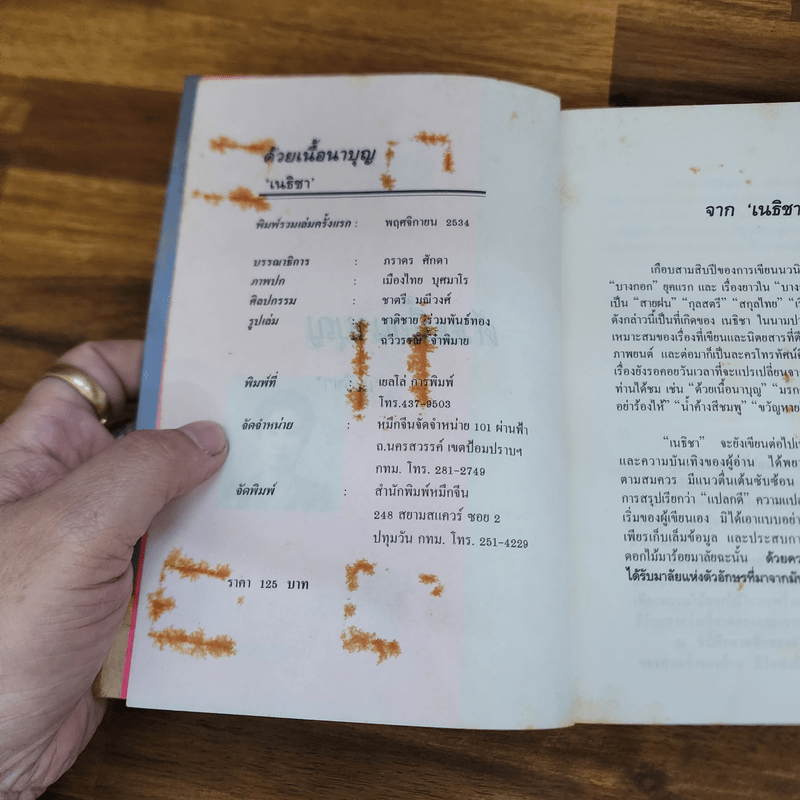 ด้วยเนื้อนาบุญ
'เนธิชา'
พิมพ์รวมเล่มครั้งแรก : พฤศจิกายน 2534
บรรณาธิการ : ภราดร ศักดา
ภาพปก : เมืองไทย บุศมาโร
ศิลปกรรม : ชาตรี มณีวงศ์
รูปเล่ม : ชาติชาย ร่วมพันธ์ทอง
ฉวีวรรณ จำพิมาย
พิมพ์ที่ : เยลโล่ การพิมพ์
โทร.437-9503
จัดจำหน่าย : หมึกจีนจัดจำหน่าย 101 ผ่านฟ้า
ถ.นครสวรรค์ เขตป้อมปราบฯ
กทม. โทร. 281-2749
จัดพิมพ์ : สำนักพิมพ์หมึกจีน
248 สยามสแควร์ ซอย 2
ปทุมวัน กทม. โทร. 251-4229
ราคา 125 บาท
จาก 'เนธิชา
เกือบสามสิบปีของการเขียนนวนิ
"บางกอก" ยุคแรก และ เรื่องยาวใน "บาง
เป็น "สายฝน" "กุลสตรี" "สกุลไทย"
ดังกล่าวนี้เป็นที่เกิดของ เนธิชา ในนามปา
เหมาะสมของเรื่องที่เขียนและนิตยสารที่ตี
ภาพยนต์ และต่อมาก็เป็นละครโทรทัศน์
เรื่องยังรอคอยวันเวลาที่จะแปรเปลี่ยนจา
ท่านได้ชม เช่น "ด้วยเนื้อนาบุญ" "มรก
อย่าร้องไห้" "น้ำค้างสีชมพู" "ขวัญหาย
"เนธิชา" จะยังเขียนต่อไปเ
และความบันเทิงของผู้อ่าน ได้พยา
ตามสมควร มีแนวตื่นเต้นซับซ้อน
การสรุปเรียกว่า "แปลกดี" ความแปล
เริ่มของผู้เขียนเอง มิได้เอาแบบอย่า
เพียรเก็บเล็มข้อมูล และประสบกา
ดอกไม้มาร้อยมาลัยฉะนั้น ด้วยคว
ได้รับมาลัยแห่งตัวอักษรที่มาจากมั